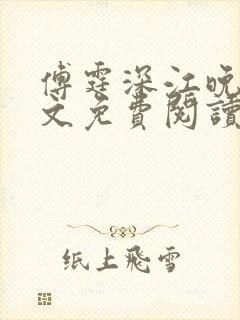 傅霆深江晚
文免費閱讀
纸上飛雪